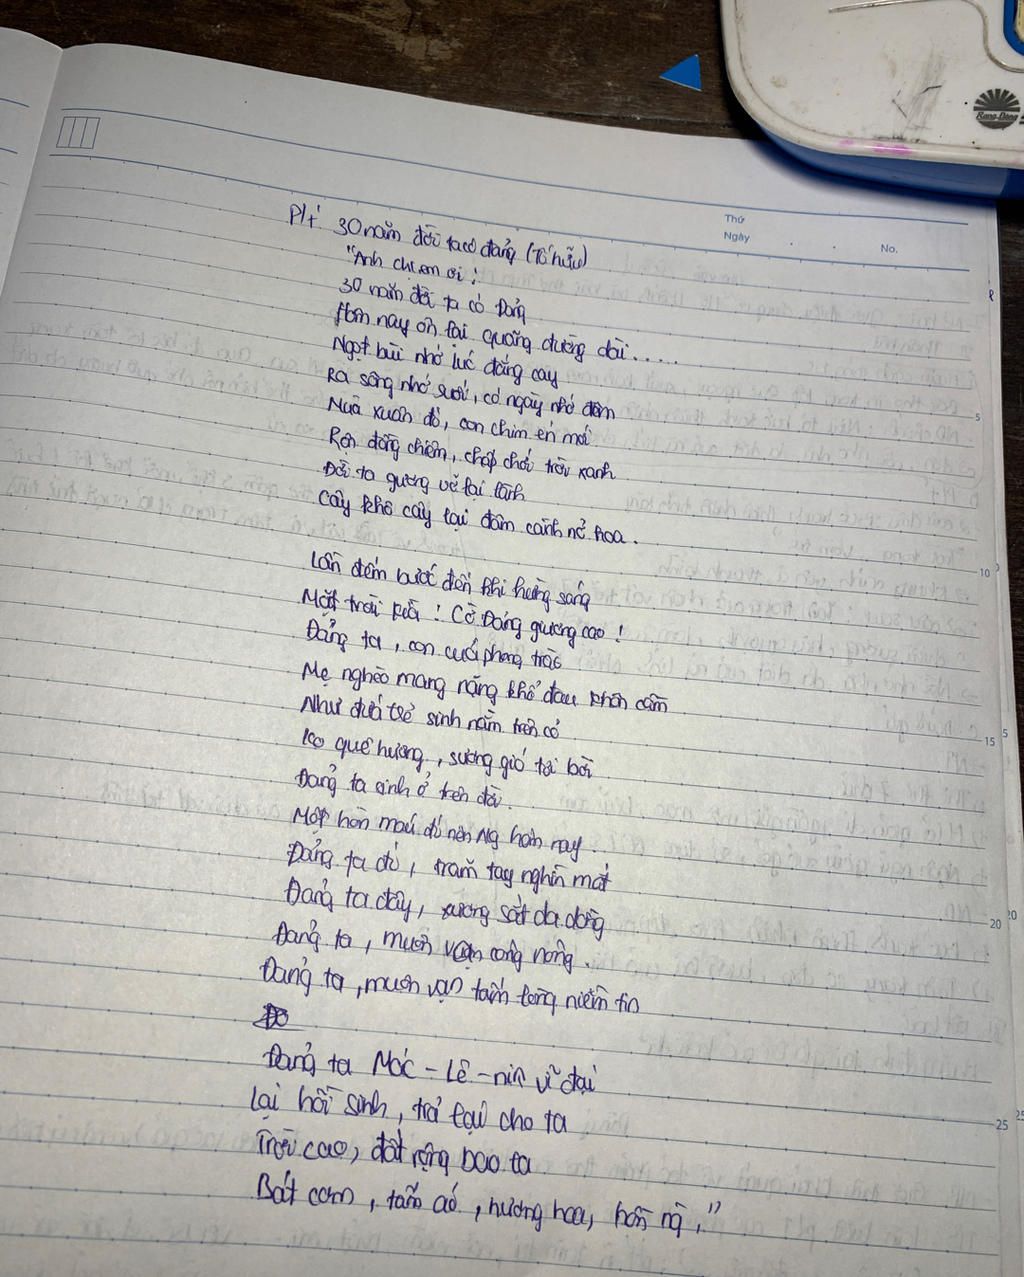 Rạng Đông
Thứ
Ngày
No.
P/t 30 năm đời ta có đảng (Tố hữu)
"Anh chị em ơi!
30 năm đời ta có Đảng
Hôm nay ôn lại quãng đường dài.....
Ngọt bùi nhớ lúc đắng cay
Ra sông nhớ suối, có ngày nhớ đêm
Mùa xuân đó, con chim én mới
Rộn đồng chiêm, chấp chới trời xanh
Đời ta gương vỡ lại lành
Cây khô cây lại đâm cành nở hoa.
5
10
Lần đêm bước đến khi hửng sáng
Mặt trời kia! Cờ Đảng giương cao!
Đảng ta, con của phong trào
Mẹ nghèo mang nặng khổ đau khôn cầm
Như đứa trẻ sinh nằm trên cỏ
quê hương, sương gió tơi bời
15
Đảng ta sinh ở trên đời.
Một hòn máu đỏ nên Ng hôm nay.
Đảng ta đó, trăm tay nghìn mắt
Đảng ta đây, xương sắt da đồng
Đảng ta, muôn vạn công nông.
20
Đảng ta, muôn vạn tấm lòng niềm tin
Đảng ta Mác - Lê - nin vĩ đại
Lại hồi sinh, trả lại cho ta
Trời cao, đất rộng bao la
25
Bát cơm, tấm áo, hương hoa, hồn